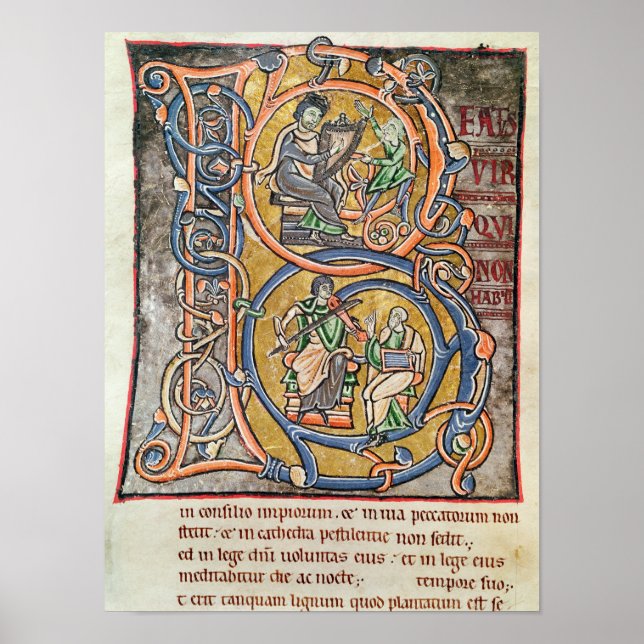 B
EATS
VIR
QVI
NON
HABIIT
in consilio impiorum. & in uia peccatorum non
stetit. & in cathedra pestilentie non sedit.;
ed in lege dñi uoluntas eius. et in lege eius
meditabitur die ac nocte; tempore suo;.
t erit tanquam lignum quod plantatum est se